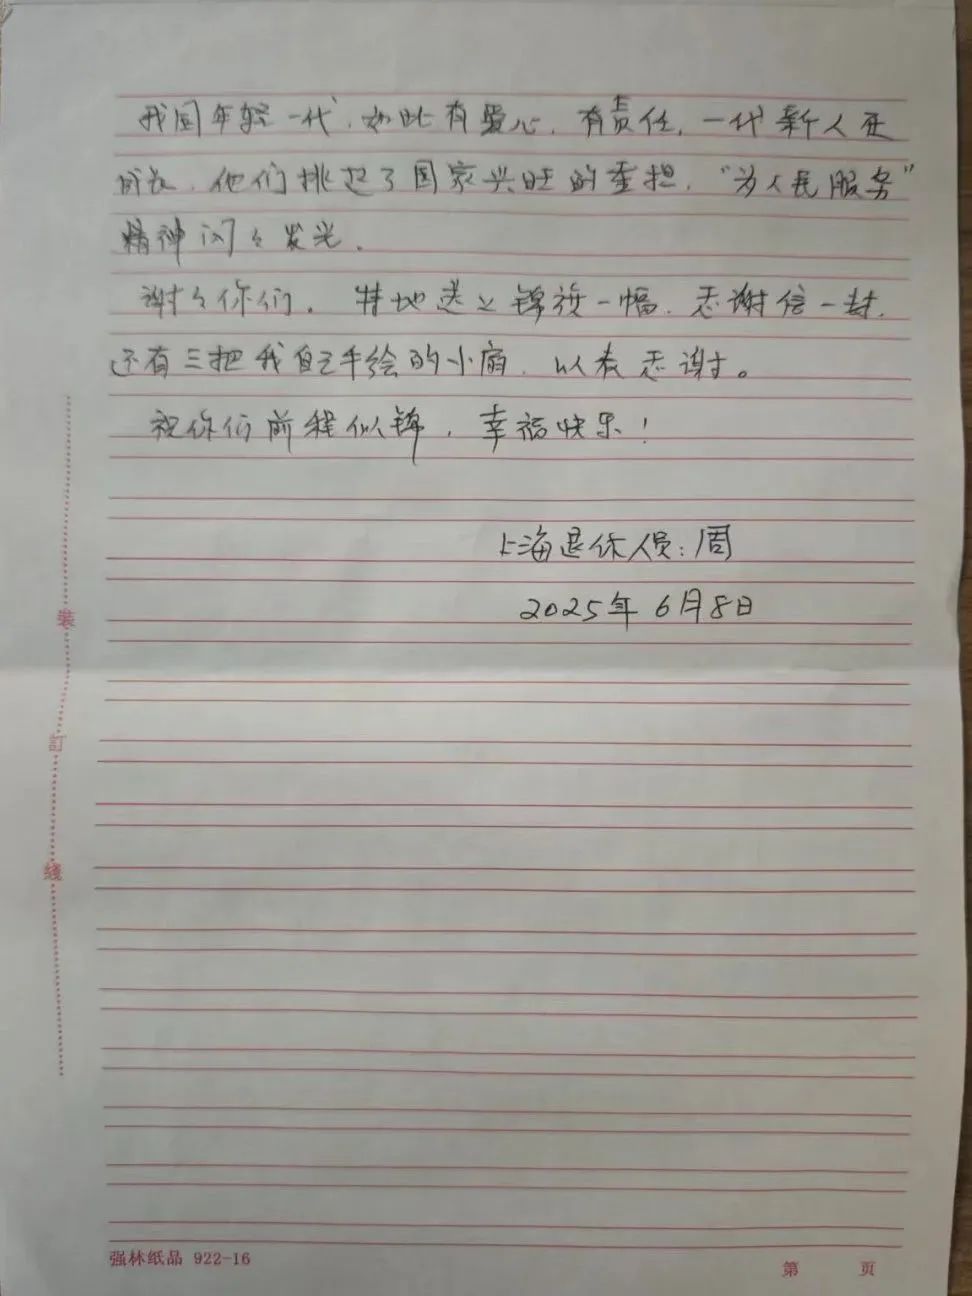 我国年轻一代,如此有爱心,有责任,一代新人在
成长,他们挑起了国家兴旺的重担,“为人民服务”
精神闪々发光.
谢々你们。特地送上锦旗一幅,感谢信一封,
还有三把我自己手绘的小扇,以表感谢。
祝你们前程似锦,幸福快乐!
上海退休人员:周
2025年6月8日
装
訂
綫
强林纸品 922-16
第 页